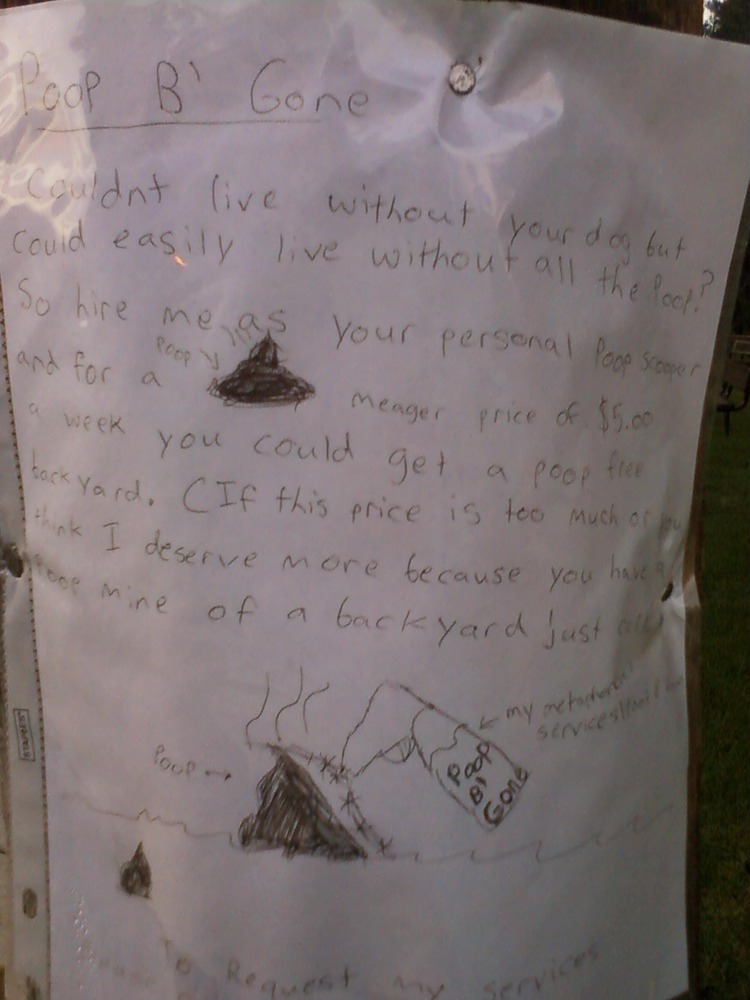 Poop B' Gone
Couldnt live without your dog but
could easily live without all the Poop?
So hire me as your personal Poop scooper
Poop
and for a meager price of $5.00
a week you could get a poop free
backyard. (If this price is too much or you
think I deserve more because you have a
poop mine of a backyard just
my metaphorical
services
Poop
Poop
B'
Gone
STAPLES
To Request my services